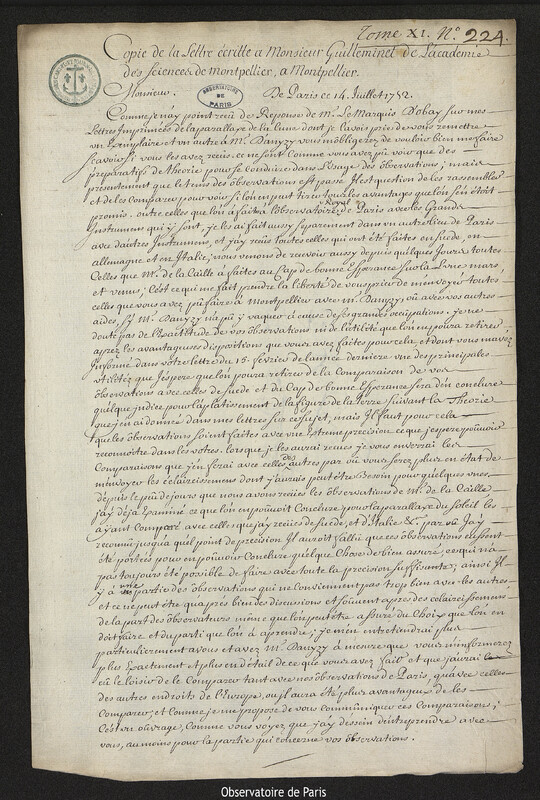 Tome XI. N.º 224.
Copie de la Lettre écrite a Monsieur Guilleminet de l'academie
des Sciences de Montpellier, a Montpellier.
Monsieur
OBSERVATOIRE DE PARIS
De Paris ce 14. Juillet 1752.
Comme je n'ay point reçu de Reponse de M.r Le Marquis D'obay sur mes
Lettres Imprimées de la parallaxe de la Lune dont je l'avois prié de vous remettre
un Exemplaire et un autre a M.r Danyzy vous m'obligerez de vouloir bien me faire
scavoir si vous les avez recues ce ne sont Comme vous avez pû voir que des
preparatifs de theorie pour se Conduire dans l'usage des observations; mais
presentement que le tems des observations est passé Il est question de les rassembler
et de les Comparer pour voir si l'on en peut tirer tous les avantages que l'on s'en étoit
promis. outre celles que l'on a faites a l'observatoire Royal de Paris avec les Grands
Instrumens qui y sont, je les ai fait aussy separement dans un autre lieu de Paris
avec d'autres Instrumens, et j'ay recû toutes celles qui ont été faites en suede, en
allemagne et en Italie; nous venons de recevoir aussy depuis quelques Jours toutes
Celles que M.r de la Caille a faites au Cap de bonne Esperance sur la Lune, mars,
et venus; C'est ce qui me fait prendre la liberté de vous prier de m'envoyer toutes
celles que vous avez pû faire a Montpellier avec M. Danyzy; ou avec vos autres
aides, si M.r Danyzy n'a pû y vaquer a cause de ses grandes occupations. je ne
doute pas de l'Exactitude de vos observations ni de l'utilité que l'on en poura retirer
aprez les avantageuses dispositions que vous avez faites pour cela, et dont vous m'avez
Informé dans votre lettre du 15. fevrier de l'année derniere une des principales
utilitéz que j'espere que l'on poura retirer de la Comparaison de vos
observations avec celles de suede et du Cap de bonne Esperance sera d'en conclure
quelque indice pour l'aplatissement de la figure de la terre suivant la Theorie
que j'en ai donnée dans mes lettres sur ce sujet, mais Il faut pour cela
que les observations soient faites avec une Extreme precision ce que j'espere pouvoir
reconnoitre dans les votres. lorsque je les aurai recues je vous enverrai les
Comparaisons que j'en ferai avec celles des autres par où vous serez plus en état de
m'envoyer les éclaircissemens dont j'aurais peut être besoin pour quelques unes.
depuis le peu de jours que nous avons reçu les observations de M.r de la Caille
j'ay déja Examiné ce que l'on en pouvoit Conclure pour la parallaxe du soleil les
ayant Comparé avec celles que j'ay reçues de suede, et d'Italie &c. par où j'ay
reconnu jusqu'a quel point de precision Il auroit fallu que ces observations eussent
été portées pour en pouvoir Conclure quelque Chose de bien assuré, ce qui n'a
pas toujours été possible de faire avec toute la precision suffisante; ainsi Il
y a une partie des observations qui ne Conviennent pas trop bien avec les autres
et ce ne peut être qu'aprés bien des discussions et souvent apres des eclaircissemens
de la part des observateurs même que l'on peut être assuré du Choix que l'on en
doit faire et du parti que l'on a a prendre; je m'en entretiendrai plus
particulierement avec vous et avec M.r Danyzy a mesure que vous m'informerez
plus Exactement et plus en détail de ce que vous avez fait et que j'aurai
eû le loisir de le Comparer tant avec nos observations de Paris, qu'avec celles
des autres endroits de l'Europe, où il aura été plus avantageux de les
Comparer; et Comme je me propose de vous Communiquer ces Comparaisons;
C'est un ouvrage, Comme vous voyez que j'ay dessein d'entreprendre avec
vous, au moins pour la partie qui concerne vos observations.
Observatoire de Paris